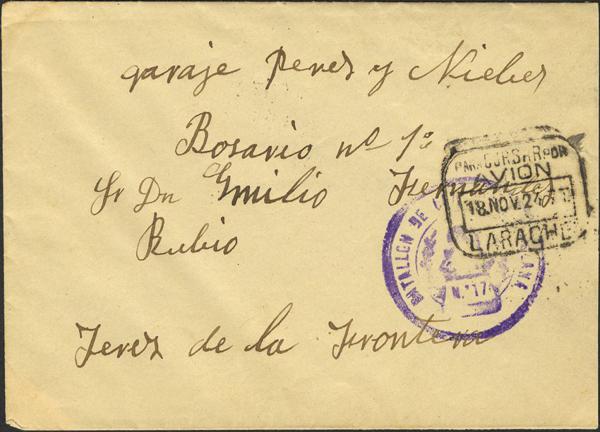 garaje Perez y Nieles
Rosario nº 1º
Sr Dn Emilio Fernandez
Rubio
Jerez de la Frontera
PARA CURSAR POR
AVION
18.NOV.24
LARACHE
BATALLON DE
Nº 17